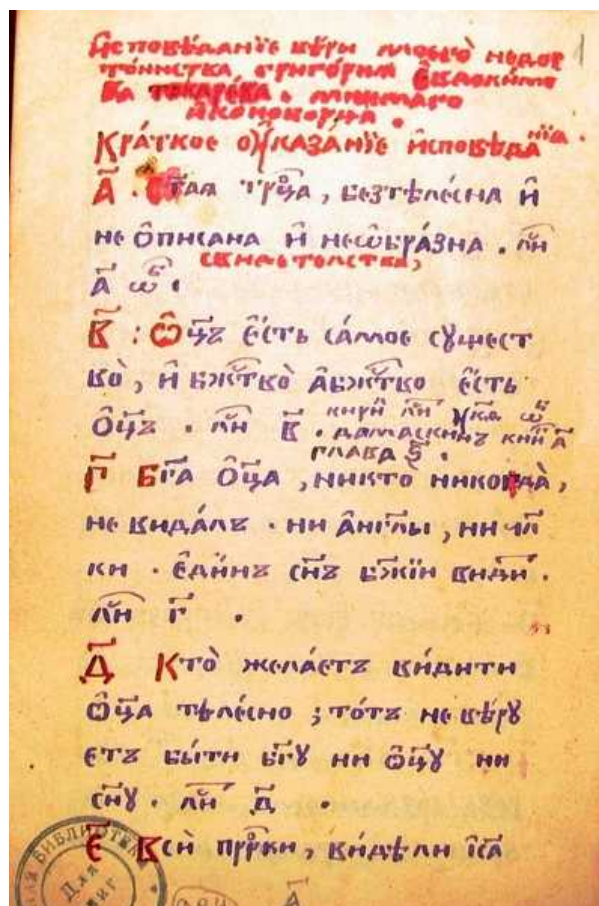 И҆сповѣ́данїе вѣ́ры моегѡ̀ недос
то́инства григо́рїѧ
ва то́карева. мнимаго
иконоборца.
Кра́ткое оу҆каза́нїе и҆сповѣда
нїѧ.
А҃. С҃таѧ трⷪ҇ца, безтѣле́сна и҆
не ѻ҆писана и҆ неѡ҆бра́зна. лⷭ҇
свидѣтелства,
а҃ ѡ҆б.
В҃: Ѻ҆ц҃ъ є҆́сть са́мое сꙋщест
во̀, и҆ бж҃ество̀ а҆бж҃ество є҆́сть
ѻ҆ц҃ъ. лⷭ҇ в҃.
дамаскинъ кни҃ а҃
глава
Г҃ Бг҃а Ѻ҆ц҃а, никто никогда̀,
не видалъ. ни а҆нг҃лы, ни чл҃
ки. є҆ди́нъ сн҃ъ бж҃їи види.
лⷭ҇ г҃.
Д҃ Кто̀ желаетъ ви́дити
Ѻ҆ц҃а тѣлесно; тотъ не вѣрꙋ
етъ быти бг҃ꙋ ни ѻ҆ц҃ꙋ ни
сн҃ꙋ. лⷭ҇ д҃.
Є҃ Вси̑ прⷪ҇ки, ви́дѣли і҆с҃а
БИБЛИОТЕКА
Для
а҃
1